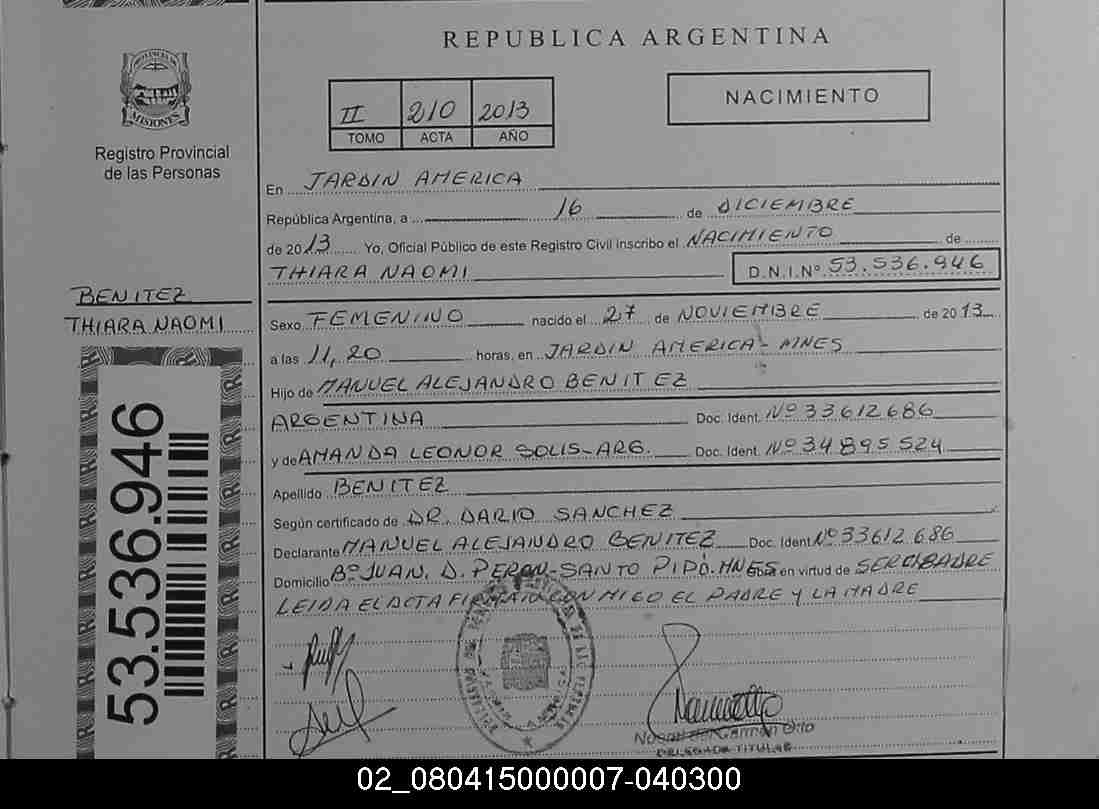 REPUBLICA ARGENTINA
PROVINCIA DE
MISIONES
Registro Provincial
de las Personas
II 210 2013
TOMO ACTA AÑO
NACIMIENTO
En JARDIN AMERICA
República Argentina, a 16 de DICIEMBRE
de 2013 Yo, Oficial Público de este Registro Civil inscribo el NACIMIENTO de
THIARA NAOMI D.N.I.Nº 53.536.946
BENITEZ
THIARA NAOMI
Sexo FEMENINO nacido el 27 de NOVIEMBRE de 2013
a las 11,20 horas, en JARDIN AMERICA- MNES
Hijo de MANUEL ALEJANDRO BENITEZ
ARGENTINA Doc. Ident. Nº 33612686
y de AMANDA LEONOR SOLIS-ARG. Doc. Ident. Nº 34895524
Apellido BENITEZ
Según certificado de DR. DARIO SANCHEZ
Declarante MANUEL ALEJANDRO BENITEZ Doc. Ident Nº 33612686
Domicilio Bº JUAN. D. PERON-SANTO PIPO.MNES Obra en virtud de SER EL PADRE
LEIDA EL ACTA FIRMAN CONMIGO EL PADRE Y LA MADRE
53.536.946
DELEGADA TITULAR
02_080415000007-040300